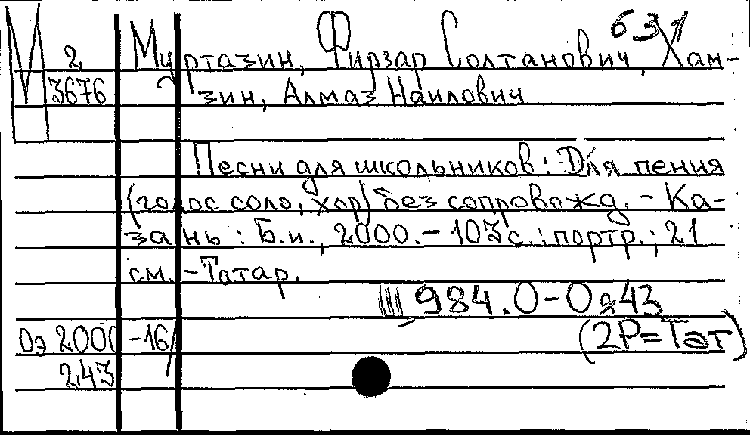 631
М 2 Муртазин, Фирзар Солтанович, Хам-
3676 зин, Алмаз Наилович
Песни для школьников: Для пения
(голос соло, хор) без сопровожд. - Ка-
зань : Б.и., 2000. - 103 с. : портр. ; 21
см. - Татар.
Щ984.0-0я43
Оэ 2000 -16/ (2Р=Тат)
243